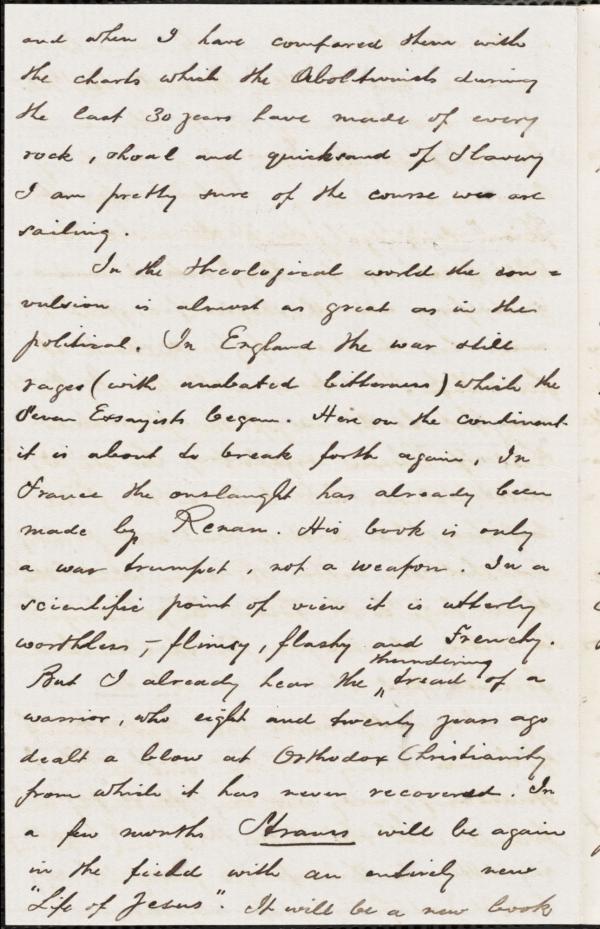 and when I have compared them with
the charts which the Abolitionists during
the last 30 years have made of every
rock, shoal and quicksand of Slavery
I am pretty sure of the course we are
sailing.
In the theological world the con=
vulsion is almost as great as in the
political. In England the war still
rages (with unabated bitterness) which the
Seven Essayists began. Here on the continent
it is about to break forth again. In
France the onslaught has already been
made by Renan. His book is only
a war trumpet, not a weapon. In a
scientific point of view it is utterly
worthless, – flimsy, flashy and Frenchy.
But I already hear the thundering tread of a
warrior, who eight and twenty years ago
dealt a blow at Orthodox Christianity
from which it has never recovered. In
a few months Strauss will be again
in the field with an entirely new
"Life of Jesus". It will be a new book